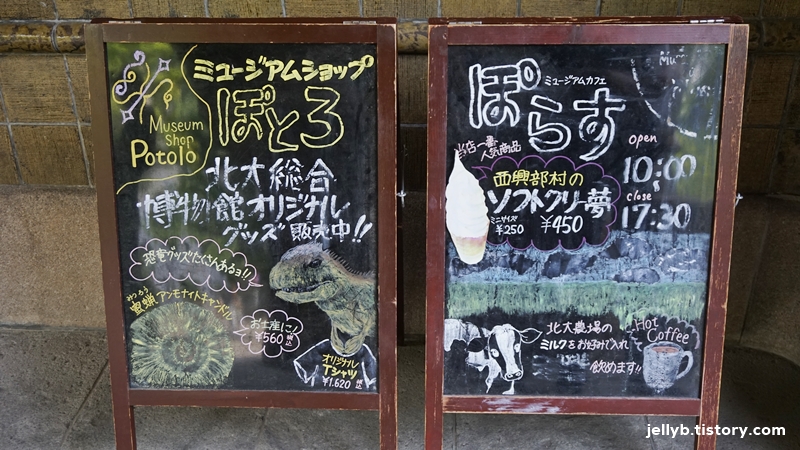 ミュージアムショップ
ぽとろ
Museum
Shop
Potolo
北大総合
博物館オリジナル
グッズ販売中!!
恐竜グッズたくさんあるヨ!!
みつろう
蜜蝋アンモナイトキャンドル
お土産に!
¥560 税込
オリジナル
Tシャツ
¥1,620 税込
ミュージアムカフェ
ぽらす
当店一番
人気商品
西興部村の
ソフトクリー夢
ミニサイズ
¥250
¥450
open
10:00
close
17:30
北大農場の
ミルクをお好みで入れ
飲めます!!
Hot
Coffee
jellyb.tistory.com